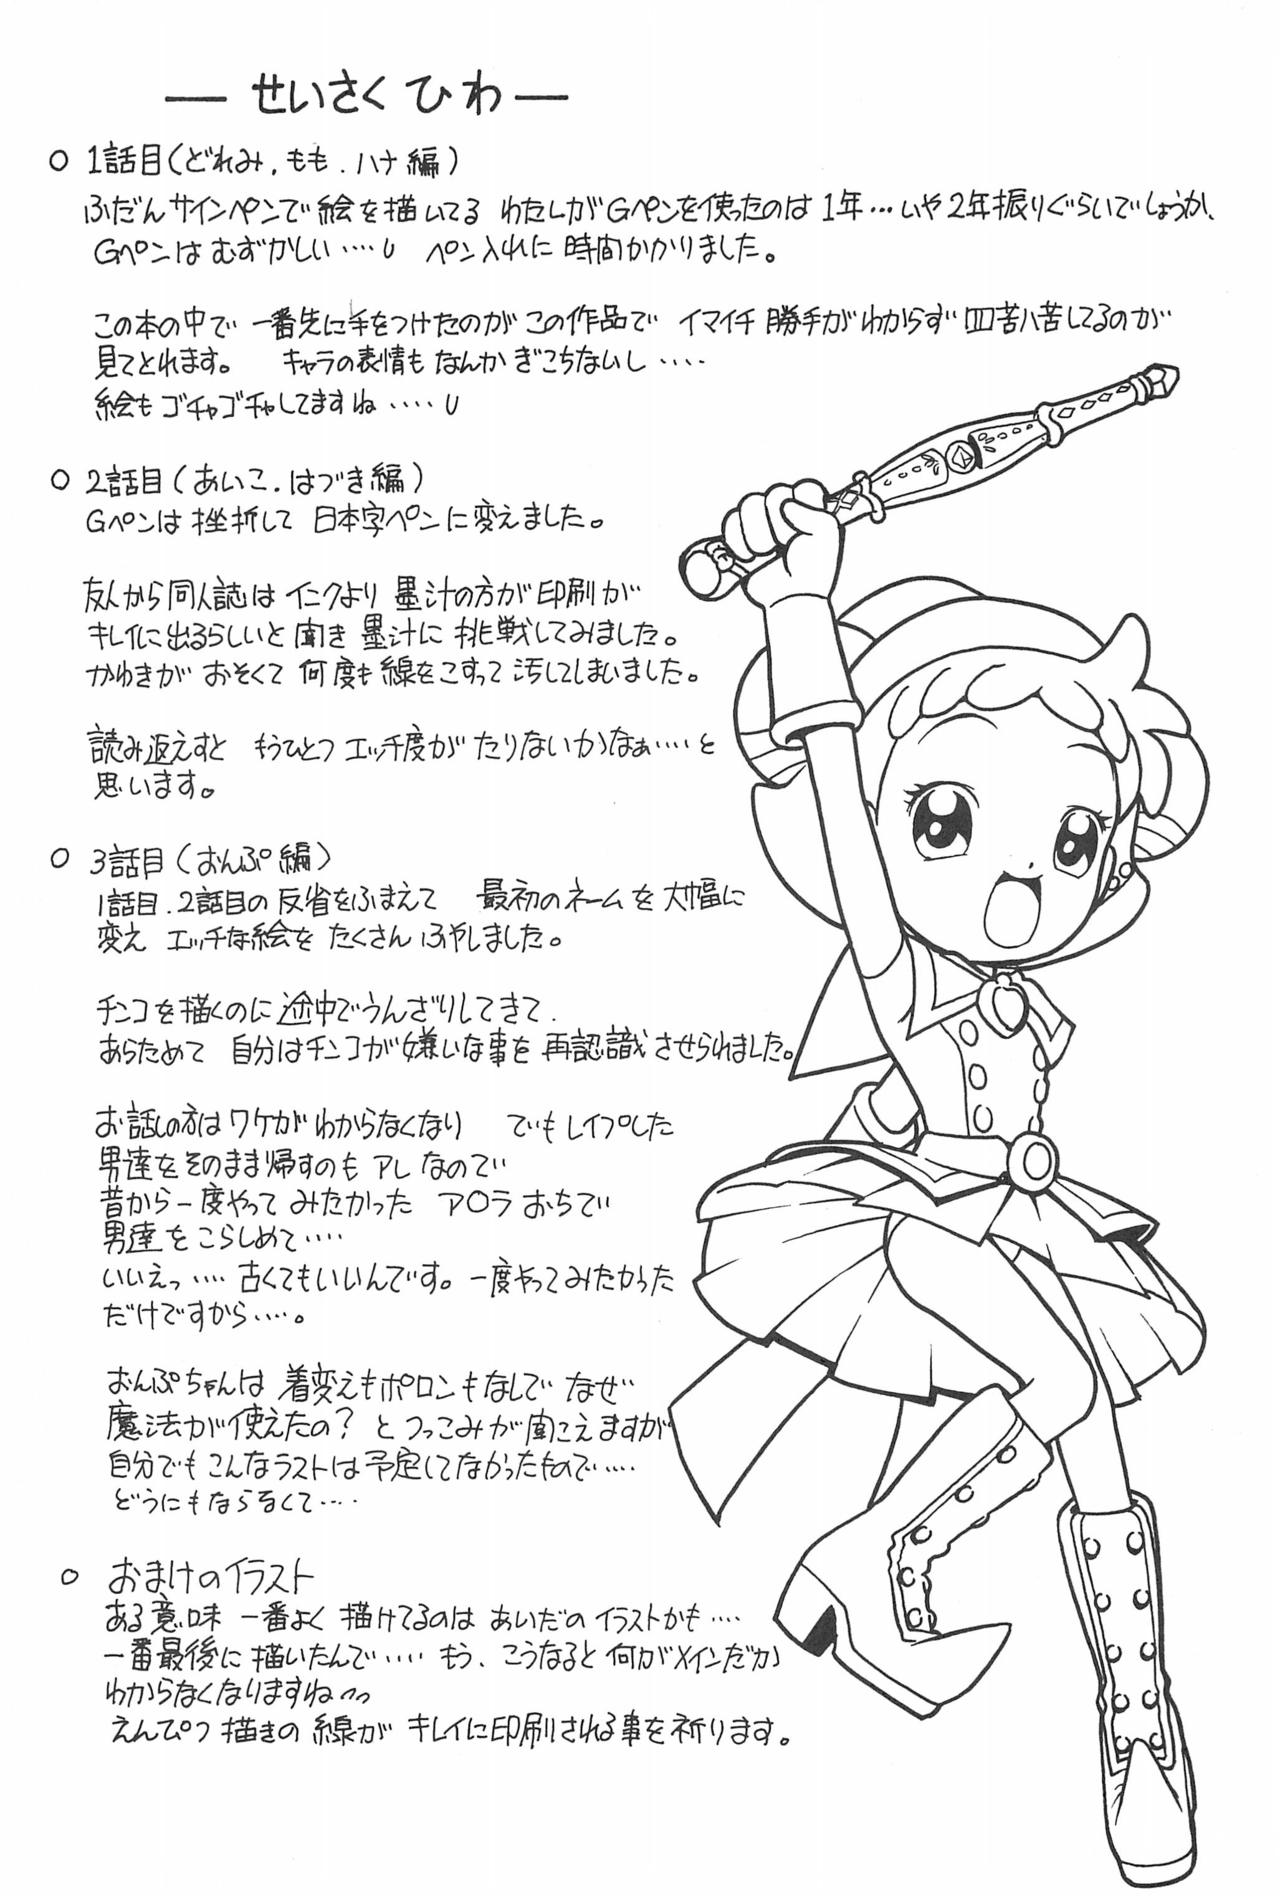 ― せいさくひわ ―
○ 1話目(どれみ.もも.ハナ編)
ふだんサインペンで絵を描いてる わたしがGペンを使ったのは1年…いや2年振りぐらいでしょうか、
Gペンはむずかしい‥‥ ペン入れに時間かかりました。
この本の中で 一番先に手をつけたのがこの作品で イマイチ勝手がわからず四苦八苦してるのが
見てとれます。 キャラの表情もなんかぎこちないし‥‥
絵もゴチャゴチャしてますね‥‥
○ 2話目(あいこ.はづき編)
Gペンは挫折して 日本字ペンに変えました。
友人から同人誌はインクより 墨汁の方が印刷が
キレイに出るらしいと聞き墨汁に挑戦してみました。
かわきがおそくて 何度も線をこすって汚してしまいました。
読み返えすと もうひとつエッチ度がたりないかなぁ‥‥と
思います。
○ 3話目(おんぷ編)
1話目.2話目の反省をふまえて 最初のネームを大幅に
変えエッチな絵をたくさんふやしました。
チンコを描くのに途中でうんざりしてきて.
あらためて 自分はチンコが嫌いな事を再認識させられました。
お話しの方はワケがわからなくなり でもレイプした
男達をそのまま帰すのもアレなので
昔から一度やってみたかった ア○ラおちで
男達をこらしめて‥‥
いいえっ‥‥古くてもいいんです。一度やってみたかった
だけですから‥‥。
おんぷちゃんは着変えもポロンもなしでなぜ
魔法が使えたの?とつっこみが聞こえますが
自分でもこんなラストは予定してなかったもので‥‥
どうにもならなくて‥‥
○ おまけのイラスト
ある意味 一番よく描けてるのはあいだのイラストかも‥‥
一番最後に描いたんで‥‥もう、こうなると何がメインだか
わからなくなりますね^^
えんぴつ描きの線がキレイに印刷される事を祈ります。